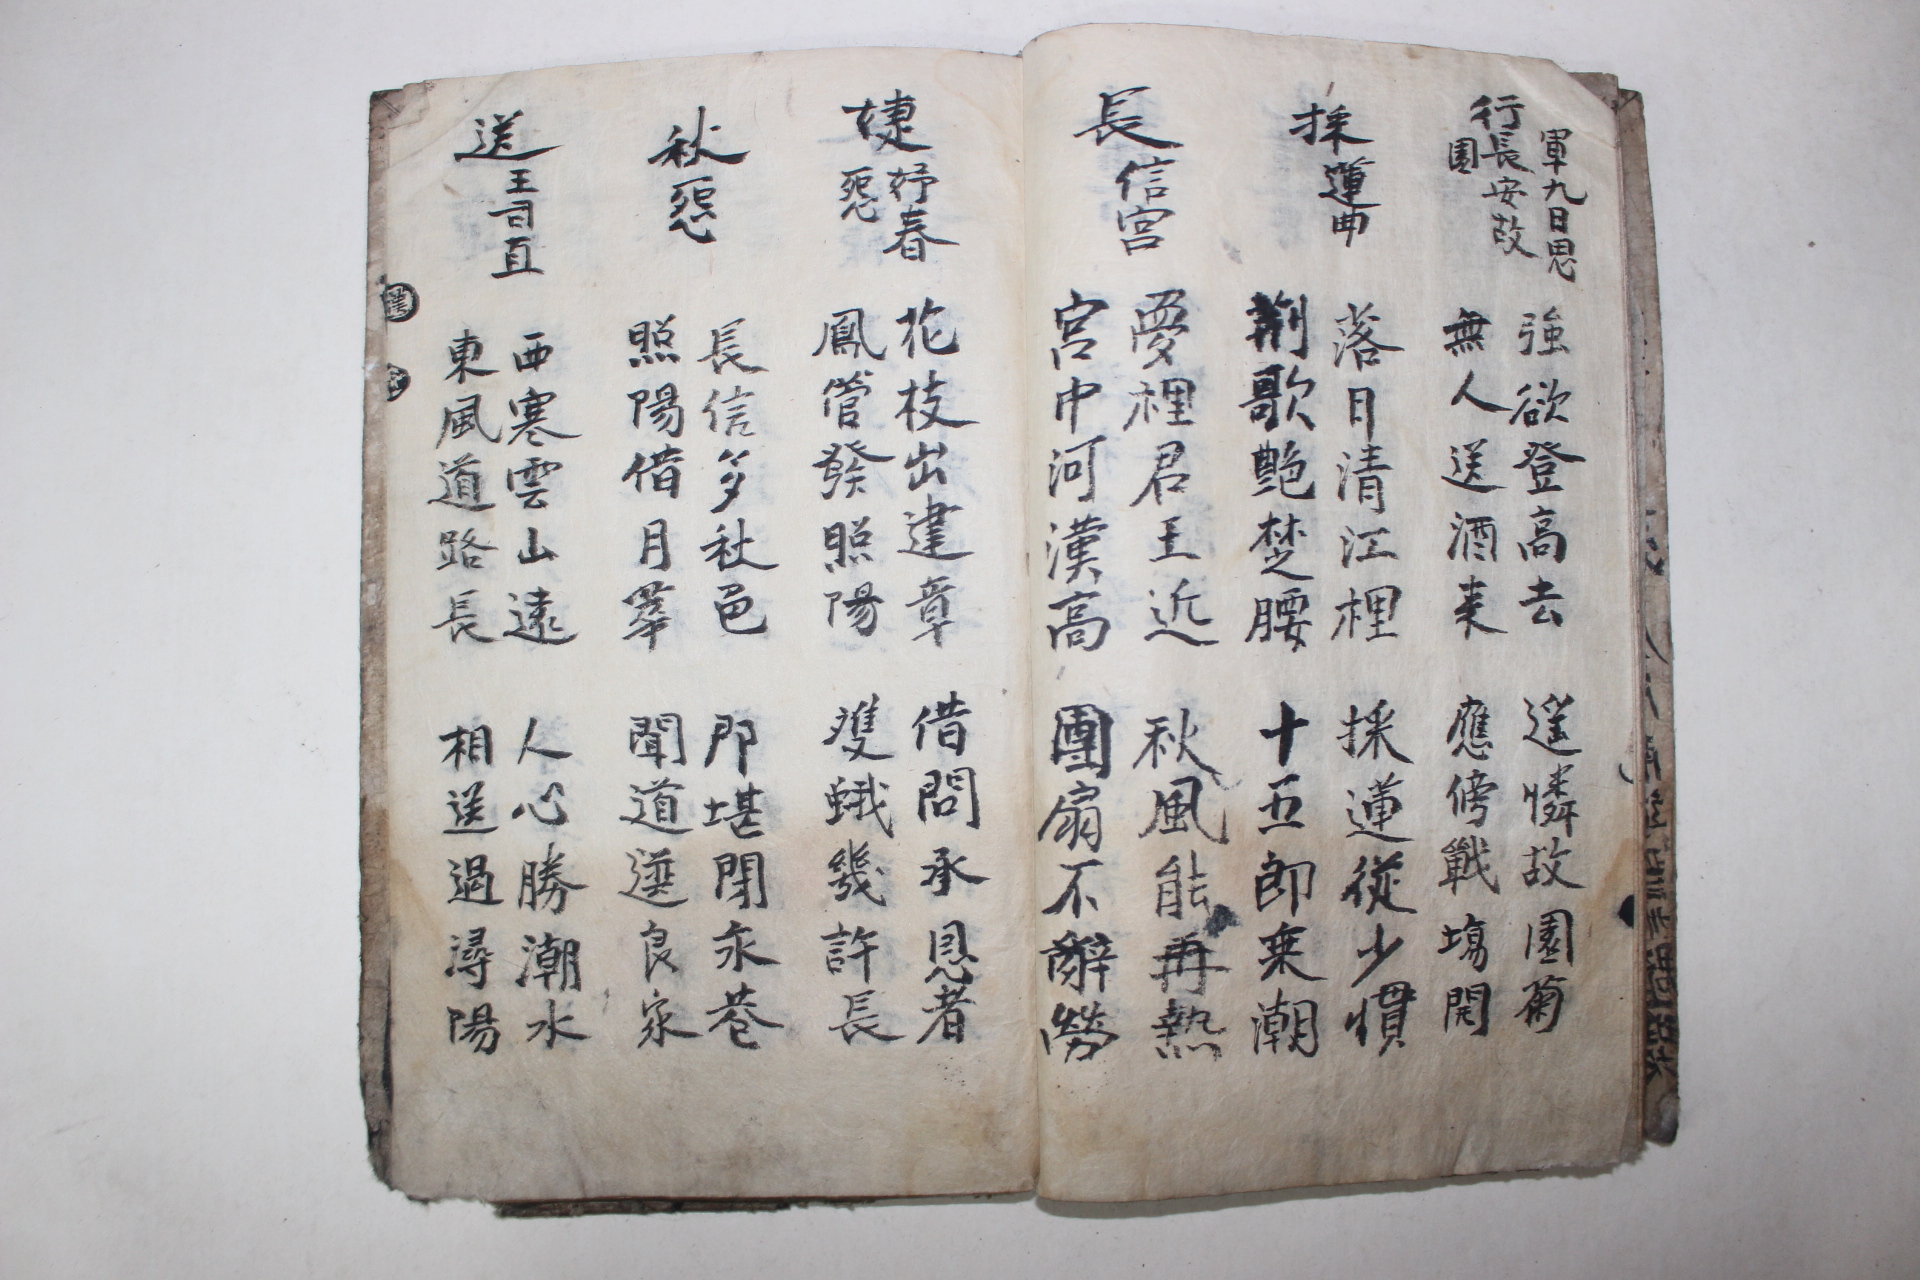 行軍九日思
長安故
園
強欲登高去 遙憐故園菊
無人送酒来 應傍戰場開
採蓮曲
落日清江裡 採蓮從少慣
荆歌艶楚腰 十五即乗潮
長信宮
愛裡君王近 秋風能再熱
宮中河漢高 團扇不辭勞
婕妤春
怨
花枝出建章 借問承恩者
鳳管發照陽 雙蛾幾許長
秋怨
長信多秋色 那堪閉永巷
照陽借月華 聞道選良家
送王司直
西塞雲山遠 人心勝潮水
東風道路長 相送過潯陽